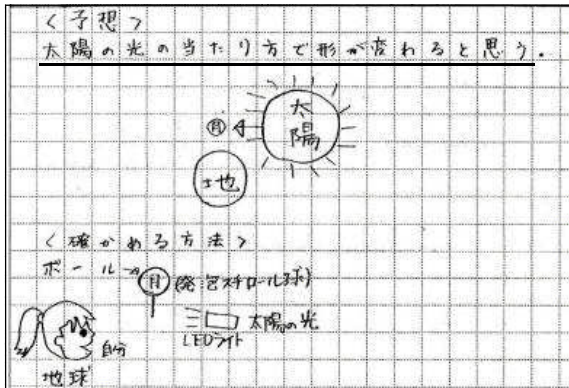 ＜予想＞
太陽の光の当たり方で形が変わると思う.
太陽
月
地
＜確かめる方法＞
ボール→
月
(発泡スチロール球)
太陽の光
LEDライト
自分
地球